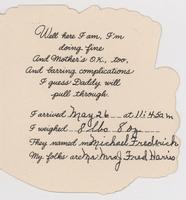 Well here I am, I'm
doing fine
And Mother's O.K., too,
And barring complications
I guess Daddy will
pull through.
I arrived May 26 at 11:45am
I weighed 8 lbs. 8 oz.
They named m Michael Fredrick
My folks are Mr. Mrs Fred Harris